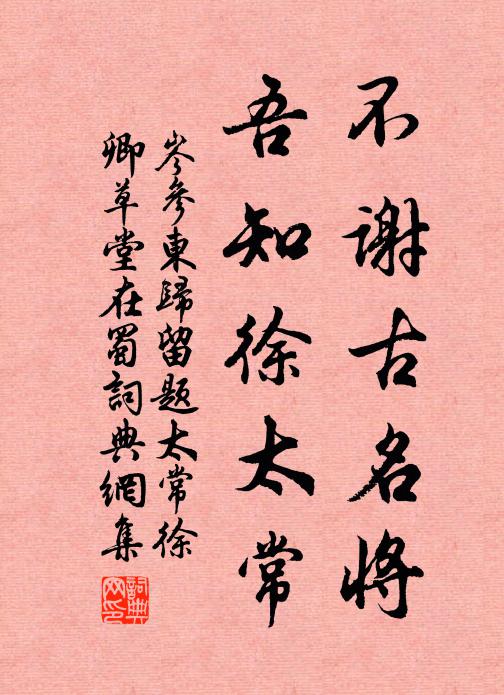 不謝古名將
吾知徐太常
岑參東歸留題太常徐
卿草堂在蜀詞典網集
詞典
网印